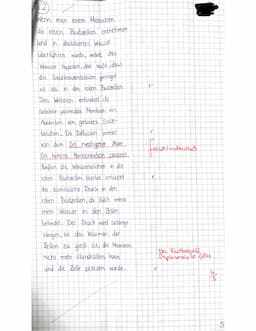 2
Wenn man einem Menschen
die roten Blutzellen entnehmen
und in destilliertes Wasser
überführen würde, wäre das
Wasser hypoton, das heißt, dass
die Salzkonzentration geringer
ist als in den roten Blutzellen.
Das Wasser
selektiv permeable Membran ein
von gelösten Salz-
teilchen. Da Diffusion immer
von dem Ort niedrigerer
Ort höherer Konzentration passiert,
fließen die Wasserteilchen in die
roten Blutzellen hinein, erhöht
der osmotische Druck in den
roten Blutzellen, da sich immer
mehr Wasser in den Zellen
befindet. Der Druck wird solange
steigen, bis das Volumen der
Zellen zu groß ist, die Membran
nicht mehr standhalten kann
und die Zelle platzen würde.
r
r
r
r
Der Fachbegriff
Deplasmolyse fehlt
4
5
5